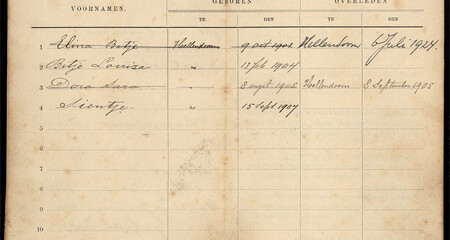 VOORNAMEN. GEBOREN OVERLEDEN
TE DEN TE DEN
1 Elina Betje Hellendoorn 9 oct 1902 Hellendoorn 6 Juli 1924.
2 Betje Louiza " 12 feb 1904
3 Dora Sara " 8 augst 1905 Hellendoorn 8 September 1905
4 Sientje " 15 Sept 1907
5
6
7
8
9
10